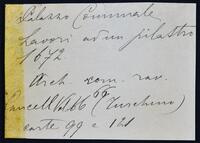 Palazzo Comunale
Lavori ad un pilastro
1672.
Arch. com. rav.
Cancell. 66 (Zuschino)
carte 99 e 121